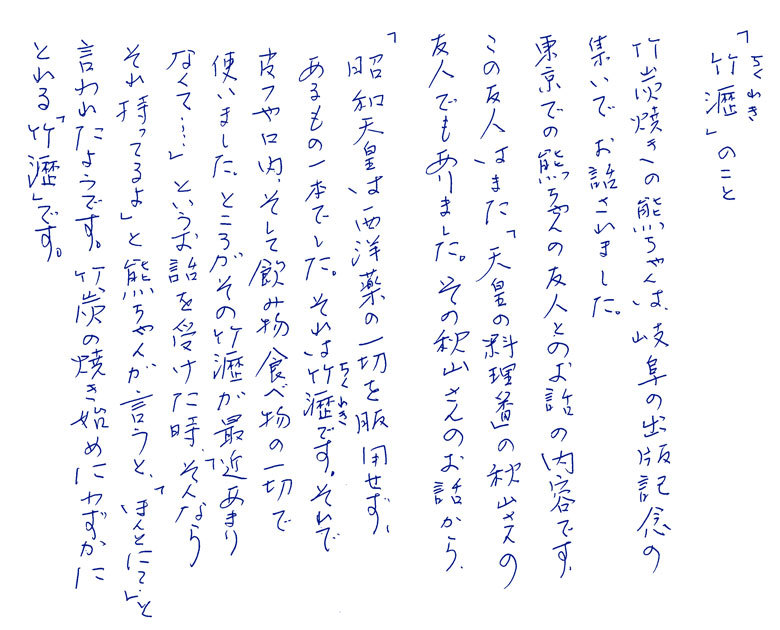 「竹瀝」のこと
ちくれき
竹炭焼きの熊ちゃんは、岐阜の出版記念の
集いでお話されました。
東京での熊ちゃんの友人とのお話の内容です。
この友人はまた「天皇の料理番」の秋山さんの
友人でもありました。その秋山さんのお話から、
「昭和天皇は西洋薬の一切を服用せず、
あるもの一本でした。それは竹瀝です。それで
ちくれき
皮フや口内、そして飲み物食べ物の一切で
使いました。ところがその竹瀝が最近あまり
なくて…」というお話を受けた時、そんなら
それ持ってるよ」と熊ちゃんが言うと、「ほんとにて」と
言われたようです。竹炭の焼き始めにわずかに
とれる「竹瀝」です。